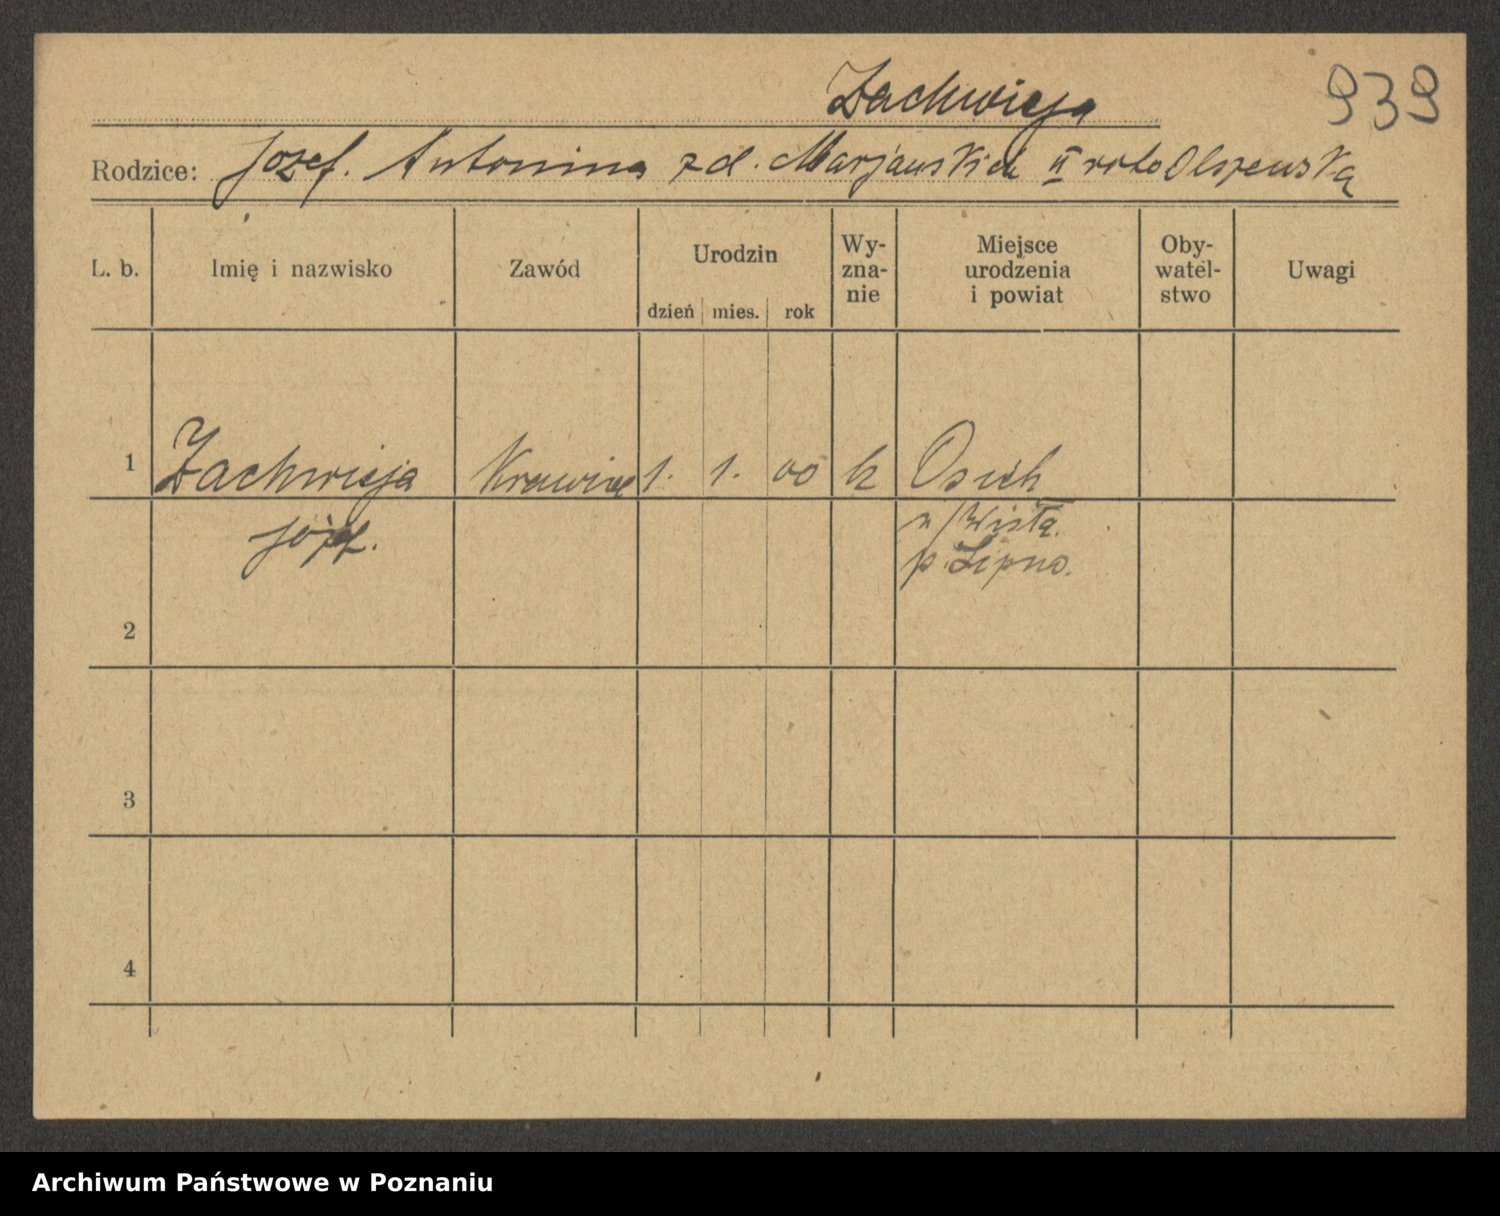 Zachwieja
939
Rodzice: Jozef. Antonina zd. Marjańskich II voto Olszewską
L. b. Imię i nazwisko Zawód Urodzin dzień mies. rok Wyznanie Miejsce urodzenia i powiat Obywatelstwo Uwagi
1 Zachwieja Krawiec 1. 1. 00 k Osiek
Józef. n/Wisłą.
p. Lipno.
2
3
4
Archiwum Państwowe w Poznaniu